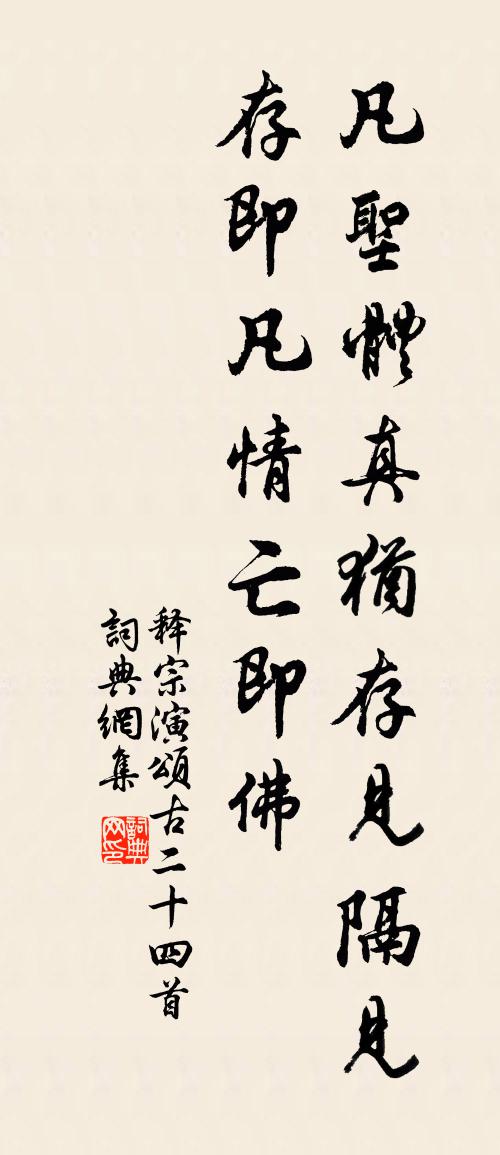 凡聖體真猶存見隔見
存即凡情亡即佛
释宗演頌古二十四首
詞典網集
詞典網印